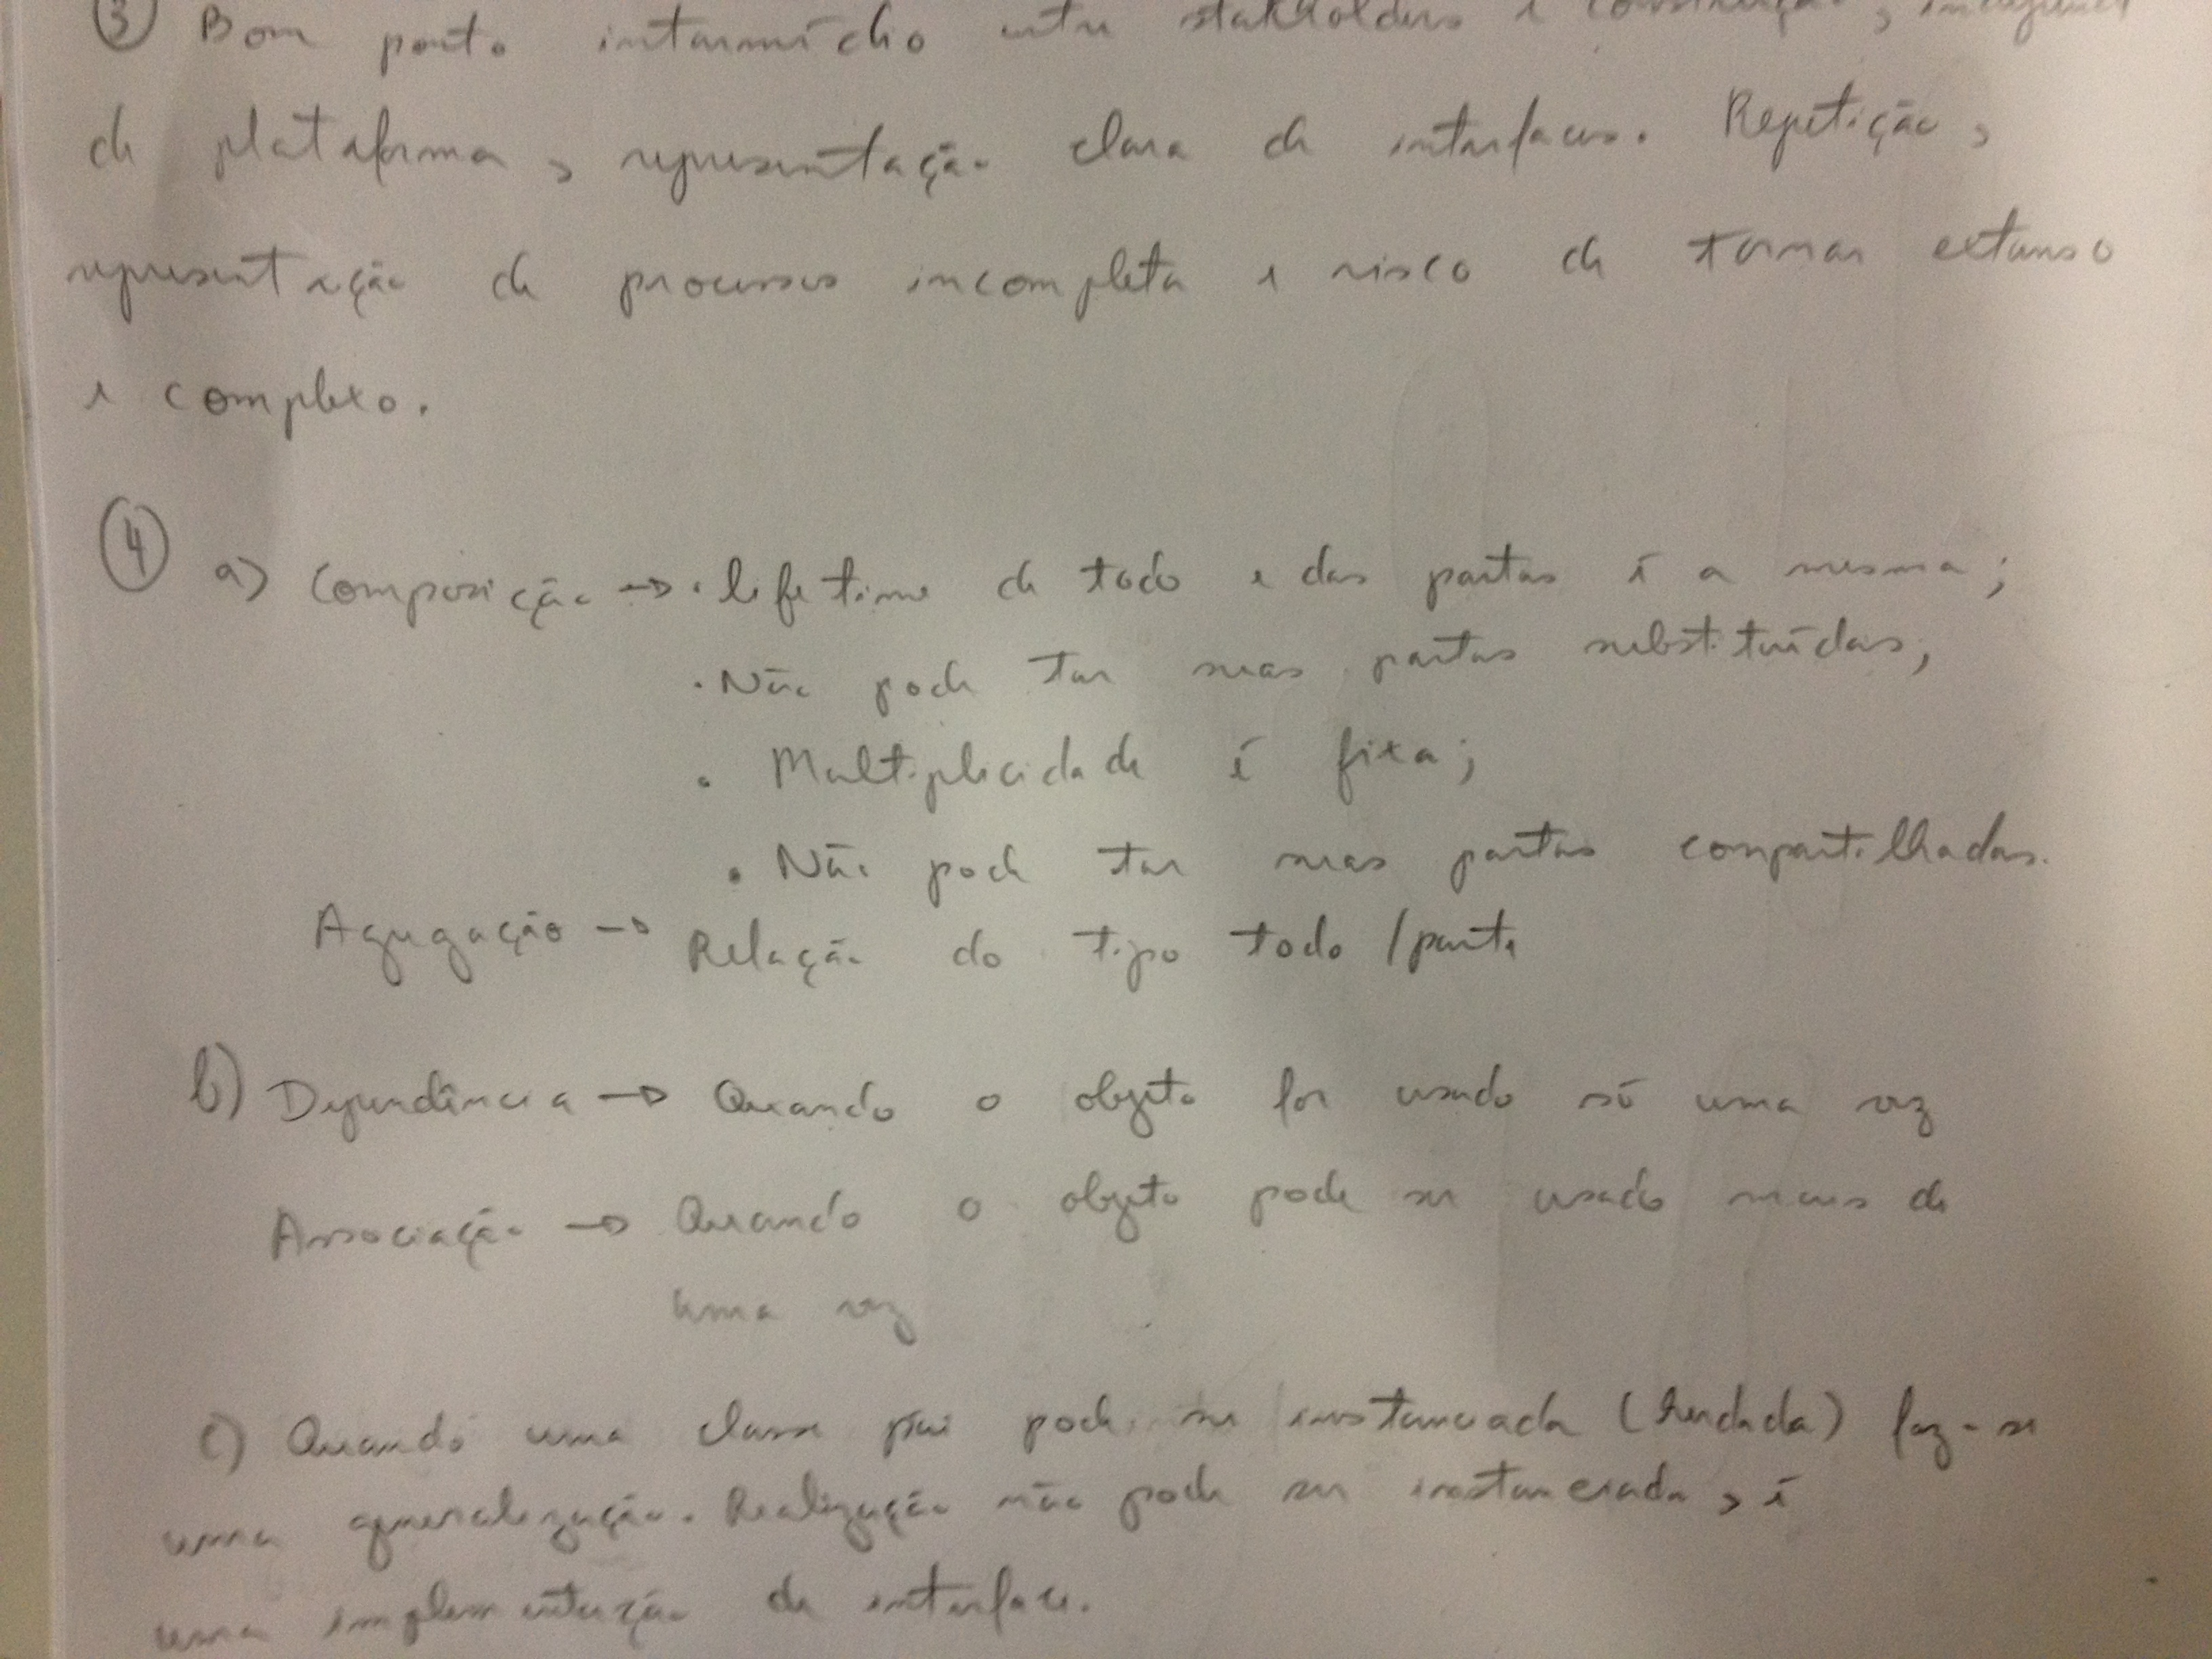 ③ Bom ponto intermédio entre stakholders e construção, independente
de plataforma, representação clara de interfaces. Repetição,
representação de processos incompleta e risco de tornar extenso
e complexo.
④ a) Composição → · lifetime de todo e das partes é a mesma;
· Não pode ter suas partes substituídas;
· Multiplicidade é fixa;
· Não pode ter suas partes compartilhadas.
Agregação → Relação do tipo todo/parte
b) Dependência → Quando o objeto for usado só uma vez
Associação → Quando o objeto pode ser usado mais de
uma vez
c) Quando uma classe pai pode ser instanciada (herdada) faz-se
uma generalização. Realização não pode ser instanciada, é
uma implementação de interface.